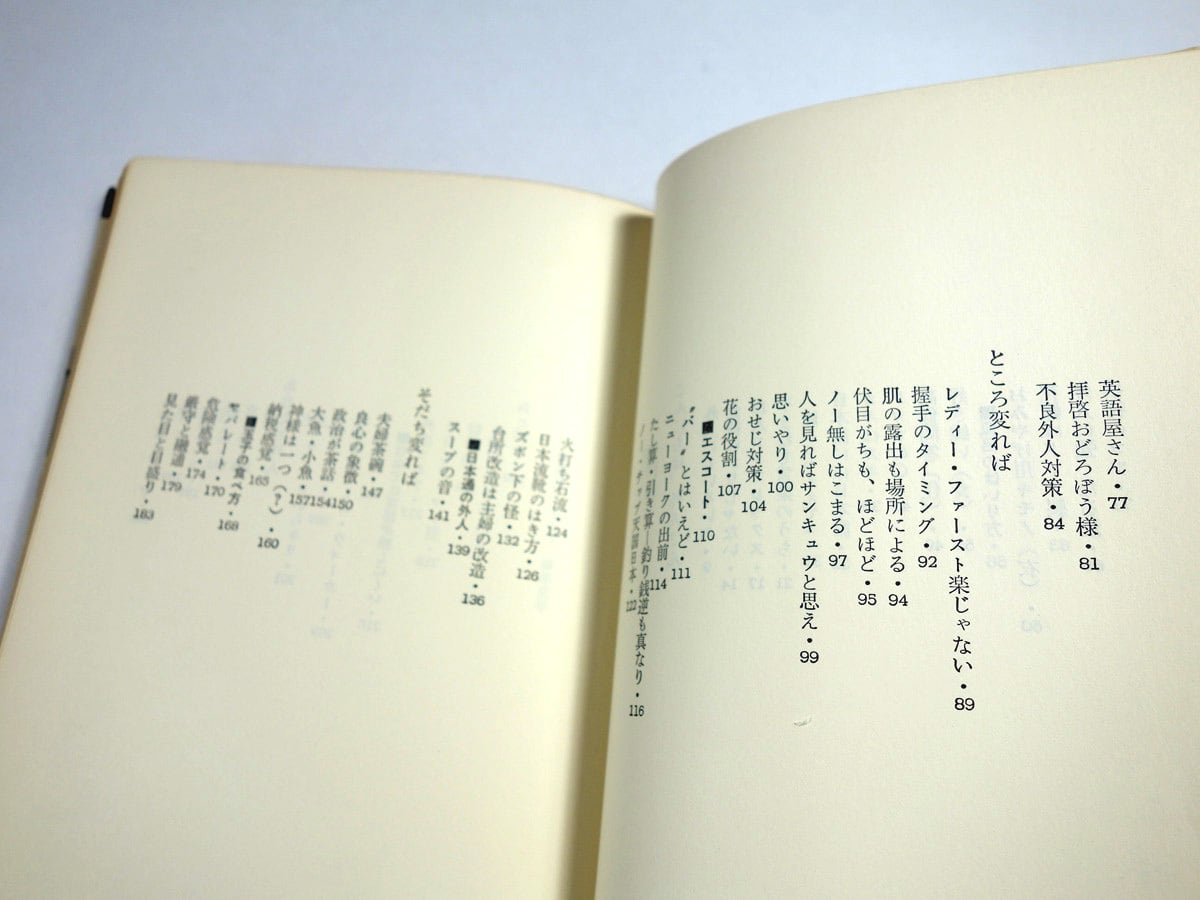 英語屋さん・77
拝啓おどろぼう様・81
不良外人対策・84
ところ変れば
レディー・ファースト楽じゃない・89
握手のタイミング・92
肌の露出も場所による・94
伏目がちも、ほどほど・95
ノー無しはこまる・97
人を見ればサンキュウと思え・99
思いやり・100
おせじ対策・104
花の役割・107
■エスコート・110
〝バー〟とはいえど・111
ニューヨークの出前・114
たし算・引き算―釣り銭逆も真なり・116
ノー・チップ天国日本・122
火打ち石流・124
日本流靴のはき方・126
ズボン下の怪・132
台所改造は主婦の改造・136
■日本通の外人・139
スープの音・141
そだち変れば
夫婦茶碗・147
良心の象徴・150
政治が茶話・154
大魚・小魚・157
神様は一つ（？）・160
納税感覚・165
■玉子の食べ方・168
セパレート・170
危険感覚・174
厳守と融通・179
見た目と目盛り・183